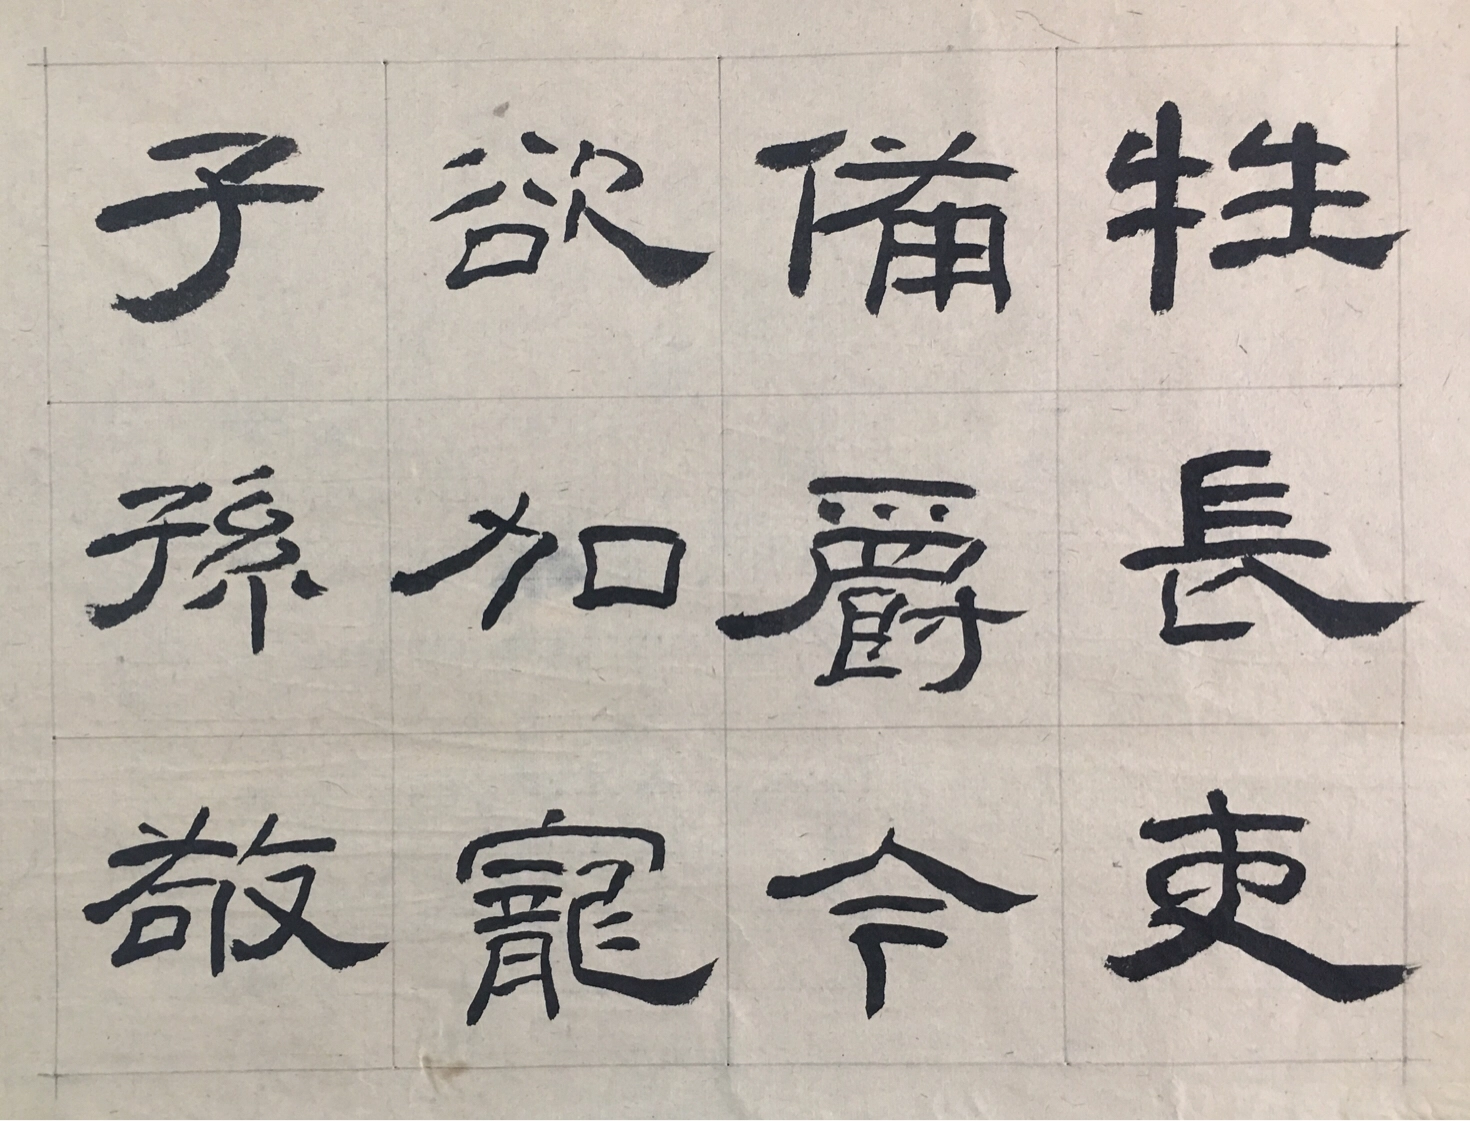 牲長吏
備爵令
欲加寵
子孫敬